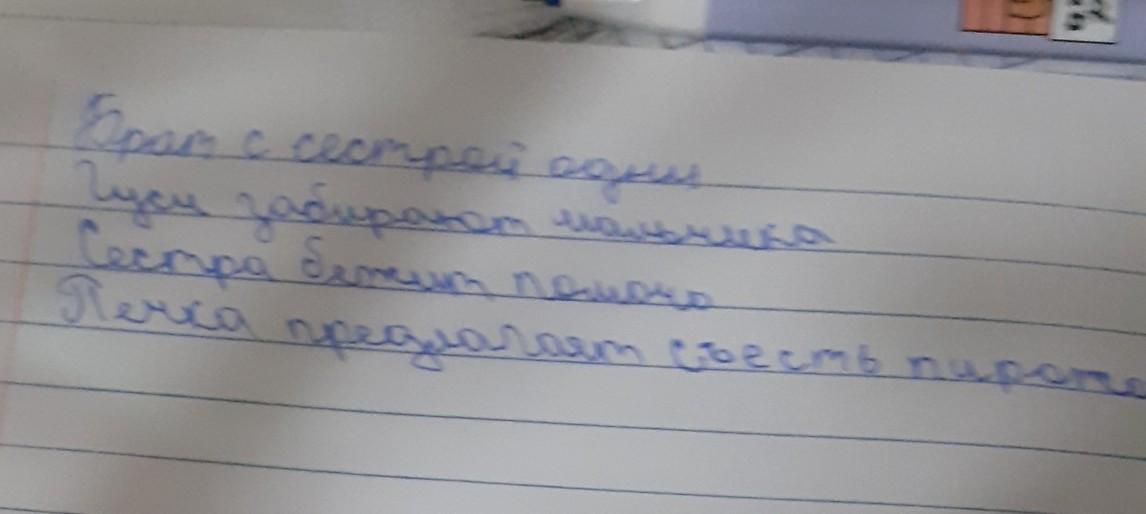 Брат с сестрой одни
Гуси забирают мальчика
Сестра бежит
Печка предлагает съесть